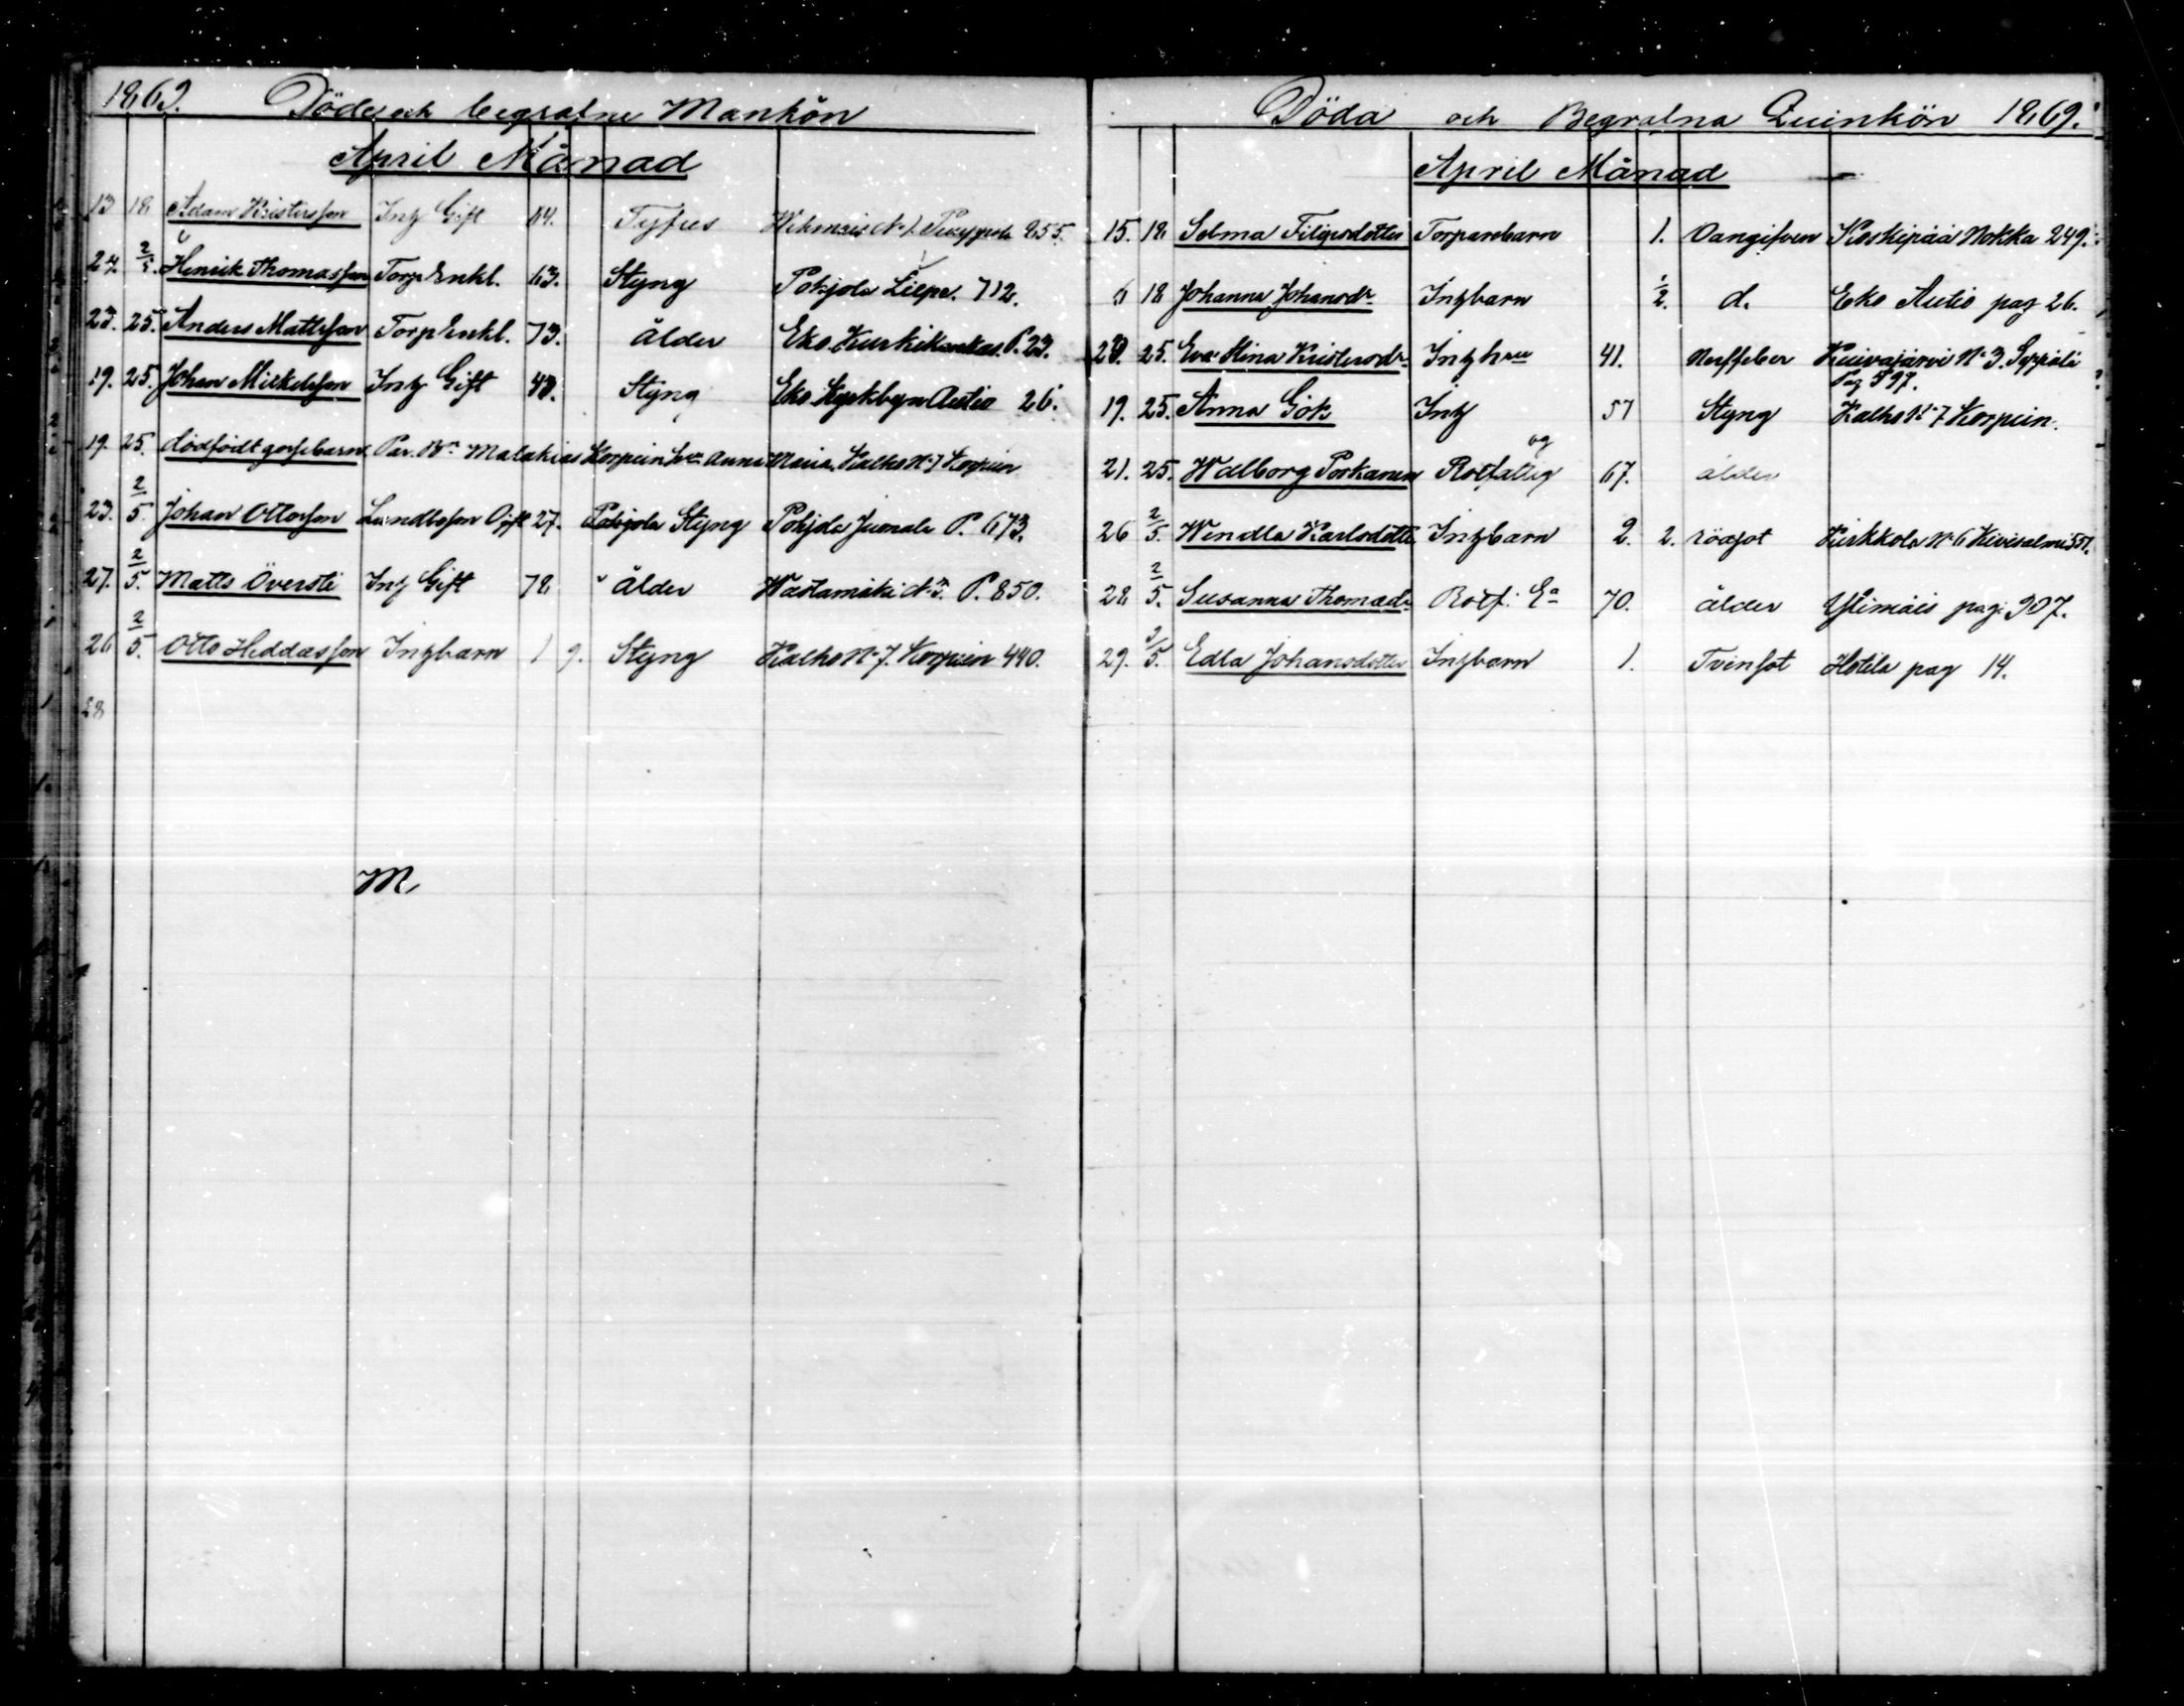 1869. Döde och begrafne Mankön
April Månad
13 18 Adam Kristersson Inh Gift 64. Tyfus
24. 2/5. Henrik Thomasson Torp Enkl. 63. Styng Pohjola Liepe. 712.
23. 25. Anders Mattsson Torp Enkl. 73. Ålder Eko P. 23.
19. 25. Johan Mickelsson Inh Gift 43. Styng Eko Kyrkbyn Autio 26.
19. 25. dödfödt gossebarn Par. Malakias Korpein Anna Maria Kalho No 7 Korpein
23. 2/5. Johan Ottosson Ogft 27. Pohjola Styng Pohjola P. 673.
27. 2/5. Matts Översti Inh Gift 78 Ålder P. 850.
26 2/5. Otto Inhbarn 1 9. Styng Kalho No 7. Korpein 440.
28
M
Döda och Begrafna Quinkön 1869.
April Månad
15. 18 Selma Filipsdotter Torparebarn 1. Oangifven Koskipää Nokka 249.
6 18 Johanna Johansdr Inhbarn 1/2. d. Eko Autio pag 26.
20. 25. Eva Stina Kristersdr Inhhru 41. Kuivajärvi No 3. Seppälä
Pag 597.
19. 25. Anna Gök Inh 57 Styng Kalho No 7 Korpein.
21. 25. Walborg Rotfattig og 67. ålder
26 2/5. Wendla Karlsdotter Inhbarn 2. 2. rödsot Kirkkola No 6 Kivisalmi 557.
28 2/5. Susanna Thomasdr Rotf: Ea 70. ålder Ylimäis pag: 907.
29. 2/5. Edla Johansdotter Inhbarn 1. Tvinsot Hotila pag 14.